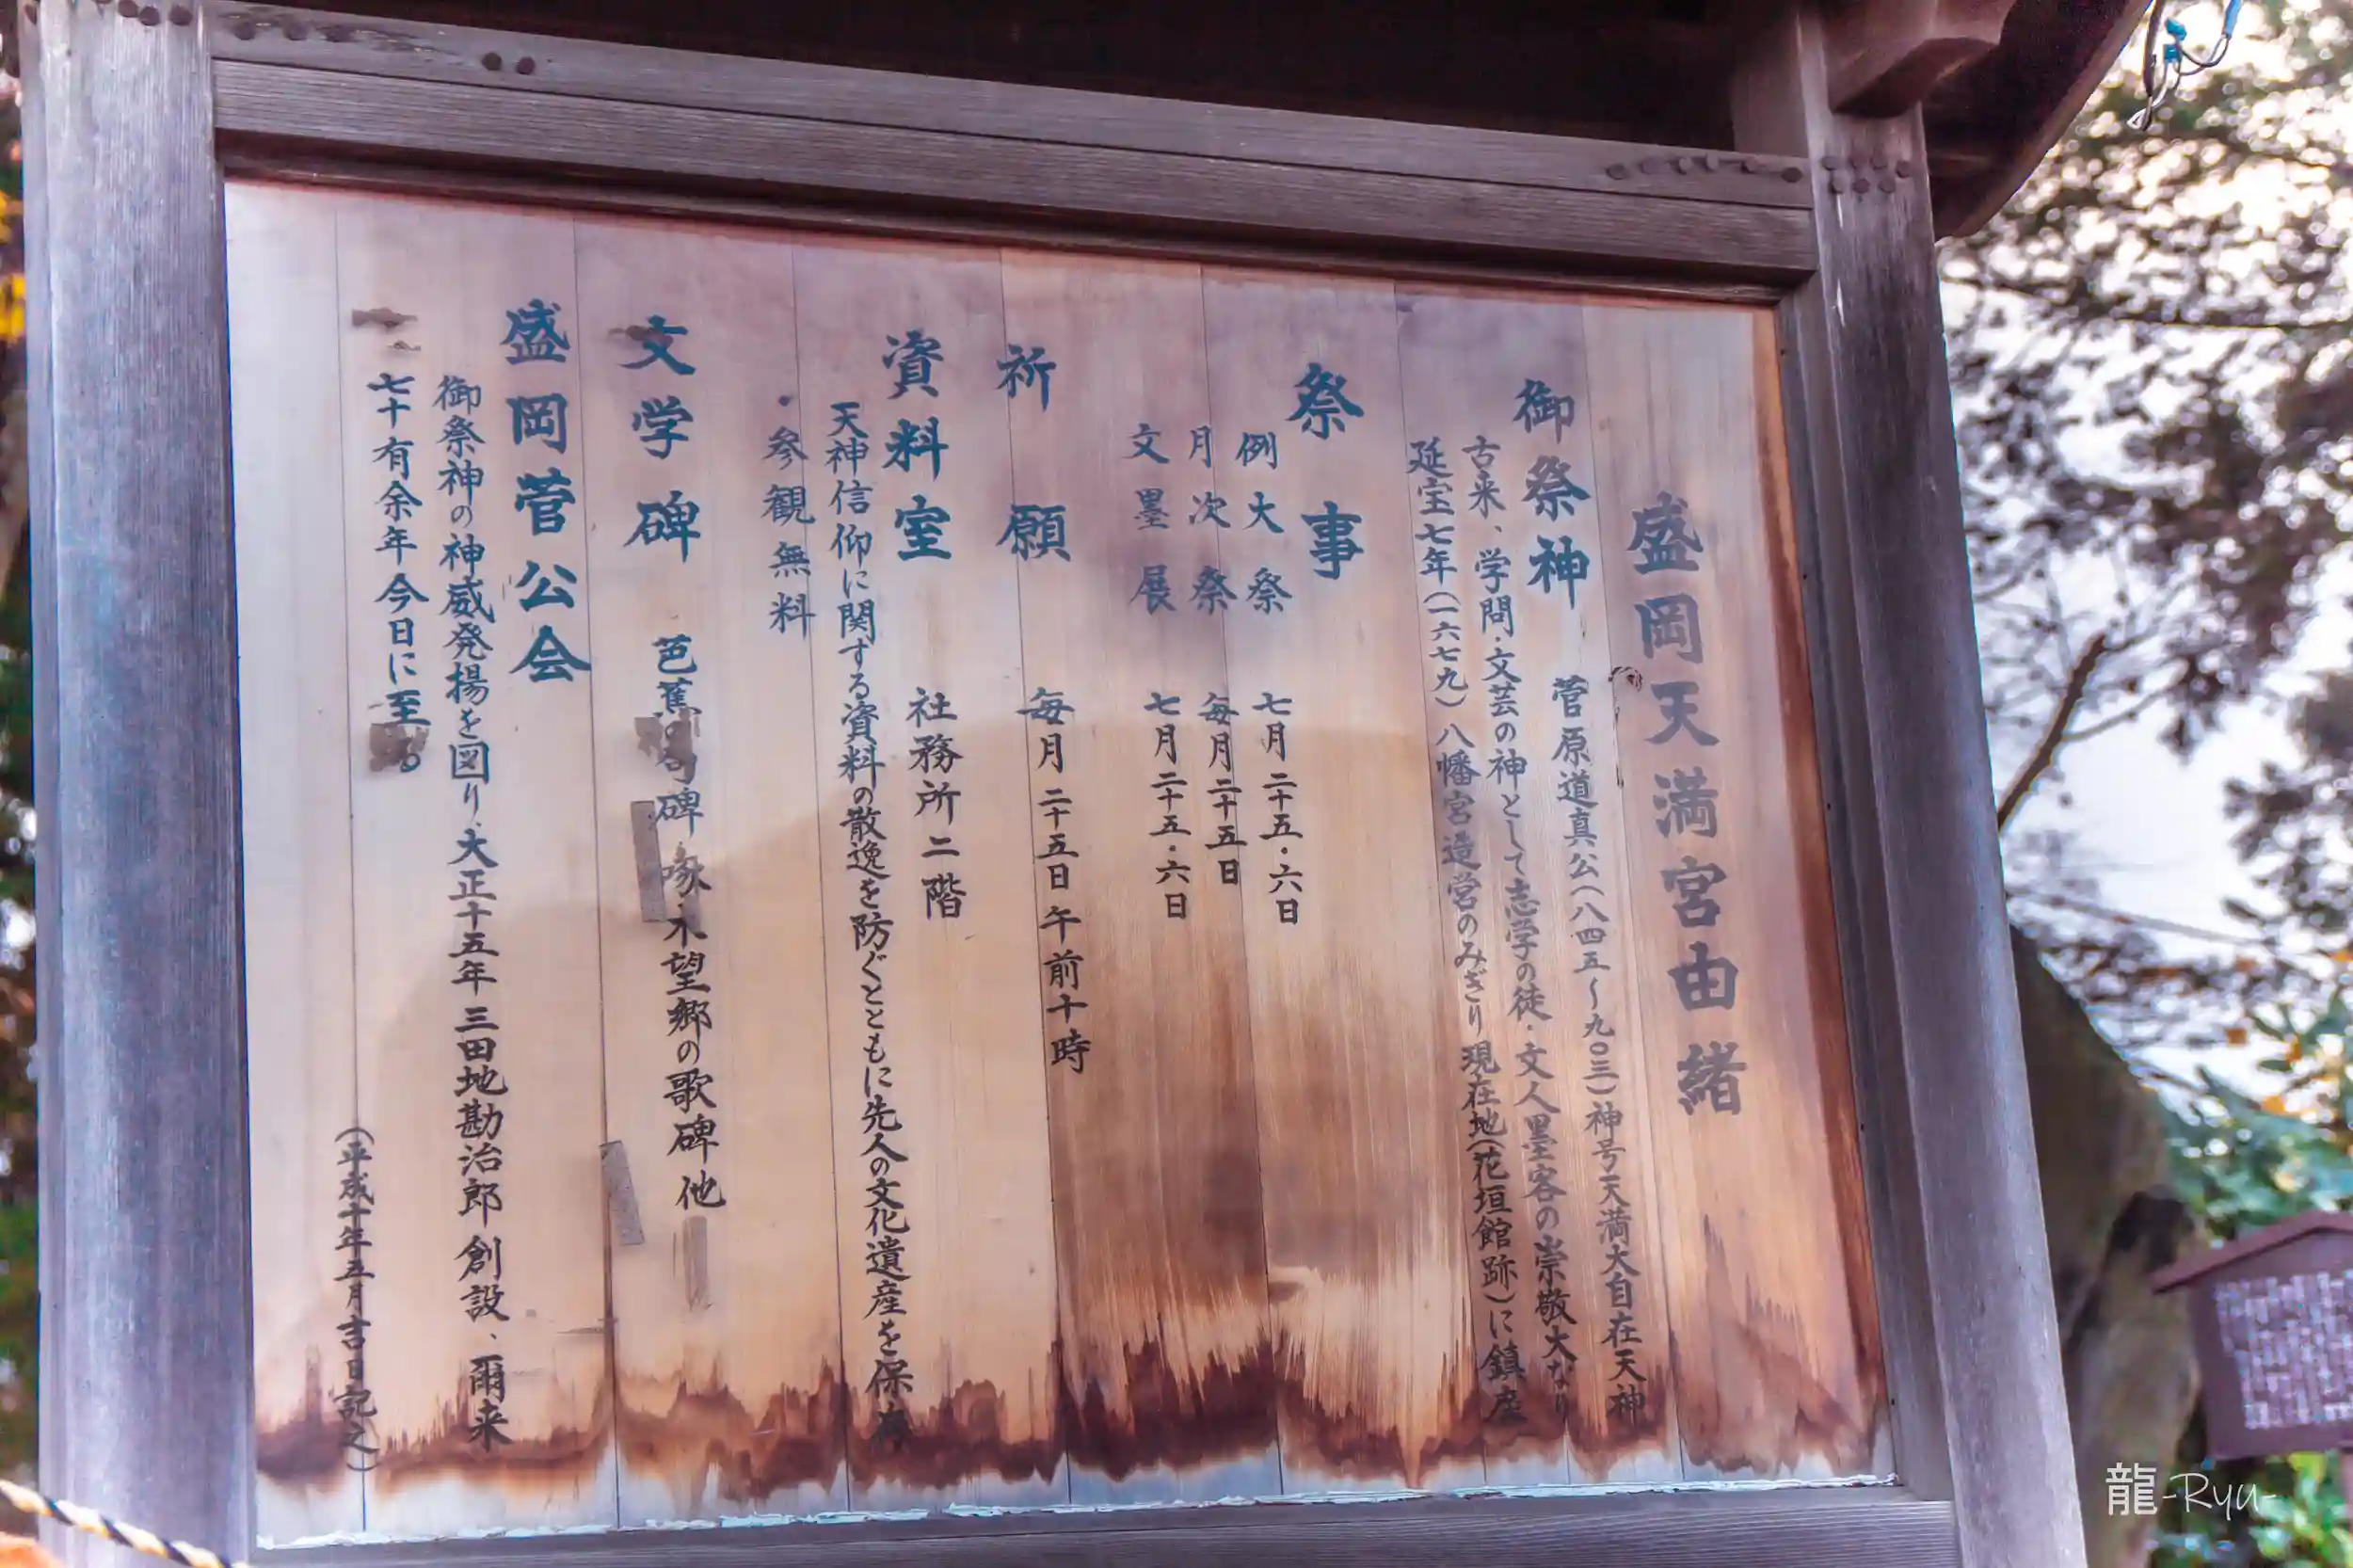 盛岡天満宮由緒
御祭神　菅原道真公(八四五〜九〇三)神号天満大自在天神
古来、学問・文芸の神として志学の徒・文人墨客の崇敬大なり
延宝七年(一六七九)八幡宮造営のみぎり現在地(花垣館跡)に鎮座
祭事
例大祭　七月二十五・六日
月次祭　毎月二十五日
文墨展　七月二十五・六日
祈願　毎月二十五日午前十時
資料室　社務所二階
天神信仰に関する資料の散逸を防ぐとともに先人の文化遺産を保存
・参観無料
文学碑　芭蕉の句碑・啄木望郷の歌碑他
盛岡菅公会
御祭神の神威発揚を図り、大正十五年三田地勘治郎創設、爾来
七十有余年今日に至る。
(平成十年五月吉日記之)
龍-Ryu-